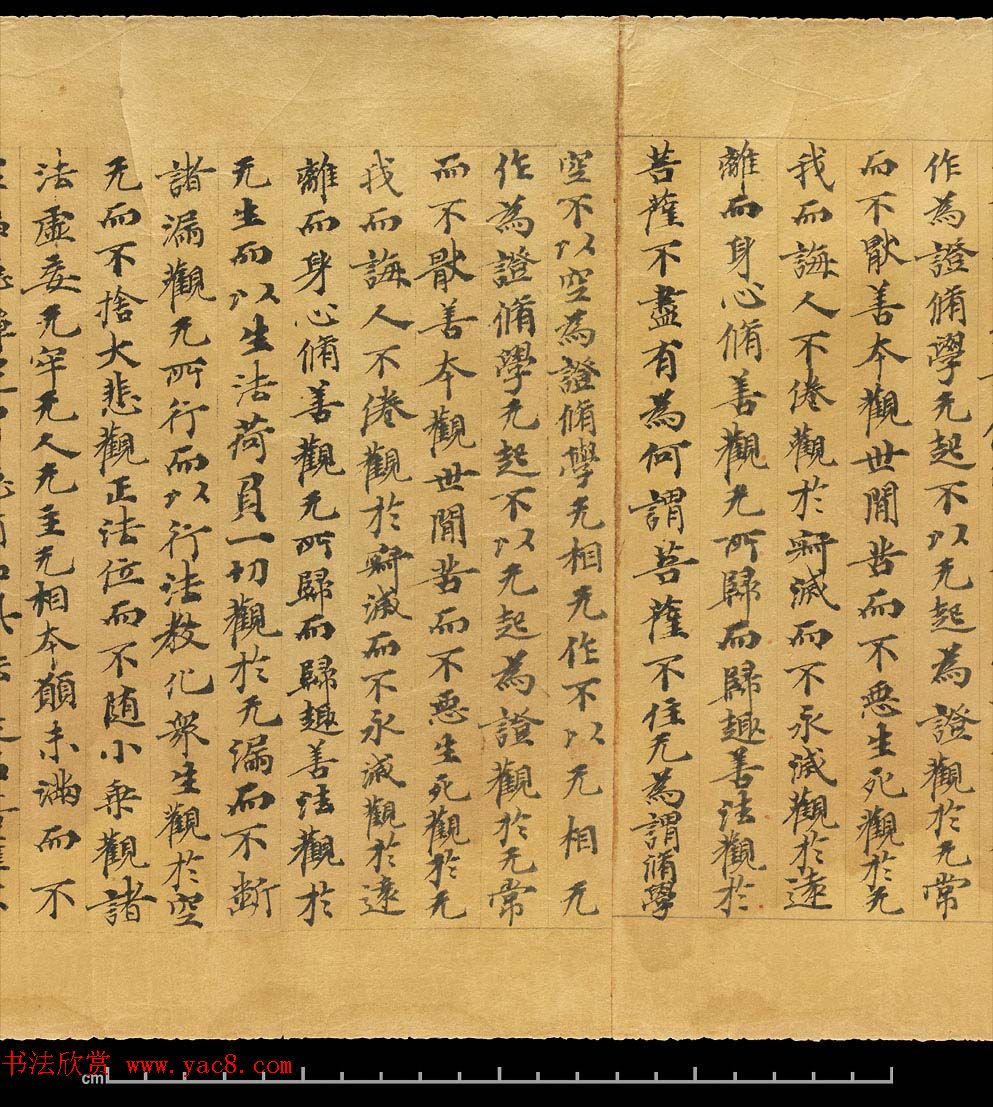 作為證脩學无起不以无起為證觀於无常
而不猒善本觀世間苦而不惡生死觀於无
我而誨人不倦觀於寂滅而不永滅觀於遠
離而身心脩善觀无所歸而歸趣善法觀於
菩薩不盡有為何謂菩薩不住无為謂脩學
空不以空為證脩學无相无作不以无相无
作為證脩學无起不以无起為證觀於无常
而不猒善本觀世間苦而不惡生死觀於无
我而誨人不倦觀於寂滅而不永滅觀於遠
離而身心脩善觀无所歸而歸趣善法觀於
无生而以生法荷負一切觀於无漏而不斷
諸漏觀无所行而以行法教化衆生觀於空
无而不捨大悲觀正法位而不随小乘觀諸
法虛妄无牢无人无主无相本願未滿而不
书法欣赏 www.yac8.com
cm